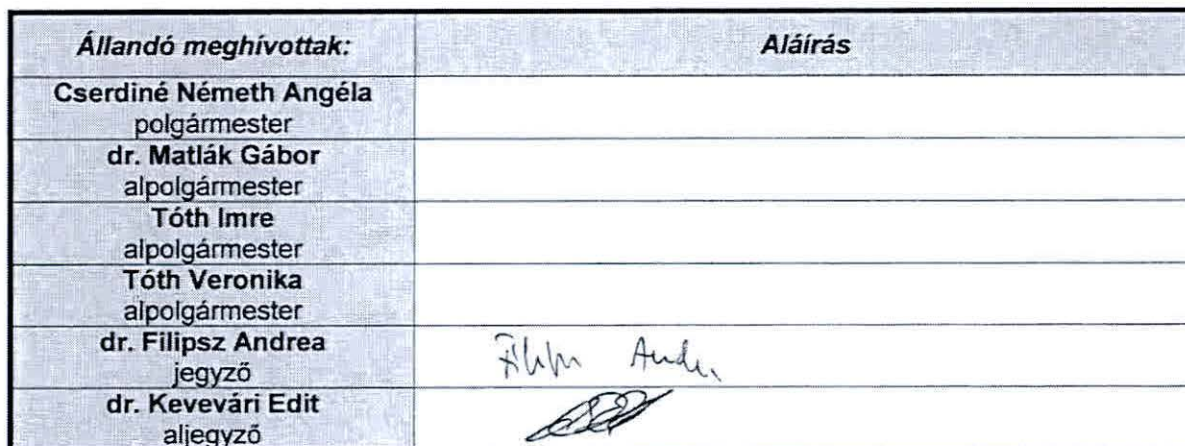 Állandó meghívottak: Aláírás
Cserdiné Németh Angéla
polgármester
dr. Matlák Gábor
alpolgármester
Tóth Imre
alpolgármester
Tóth Veronika
alpolgármester
dr. Filipsz Andrea
jegyző
dr. Kevevári Edit
aljegyző